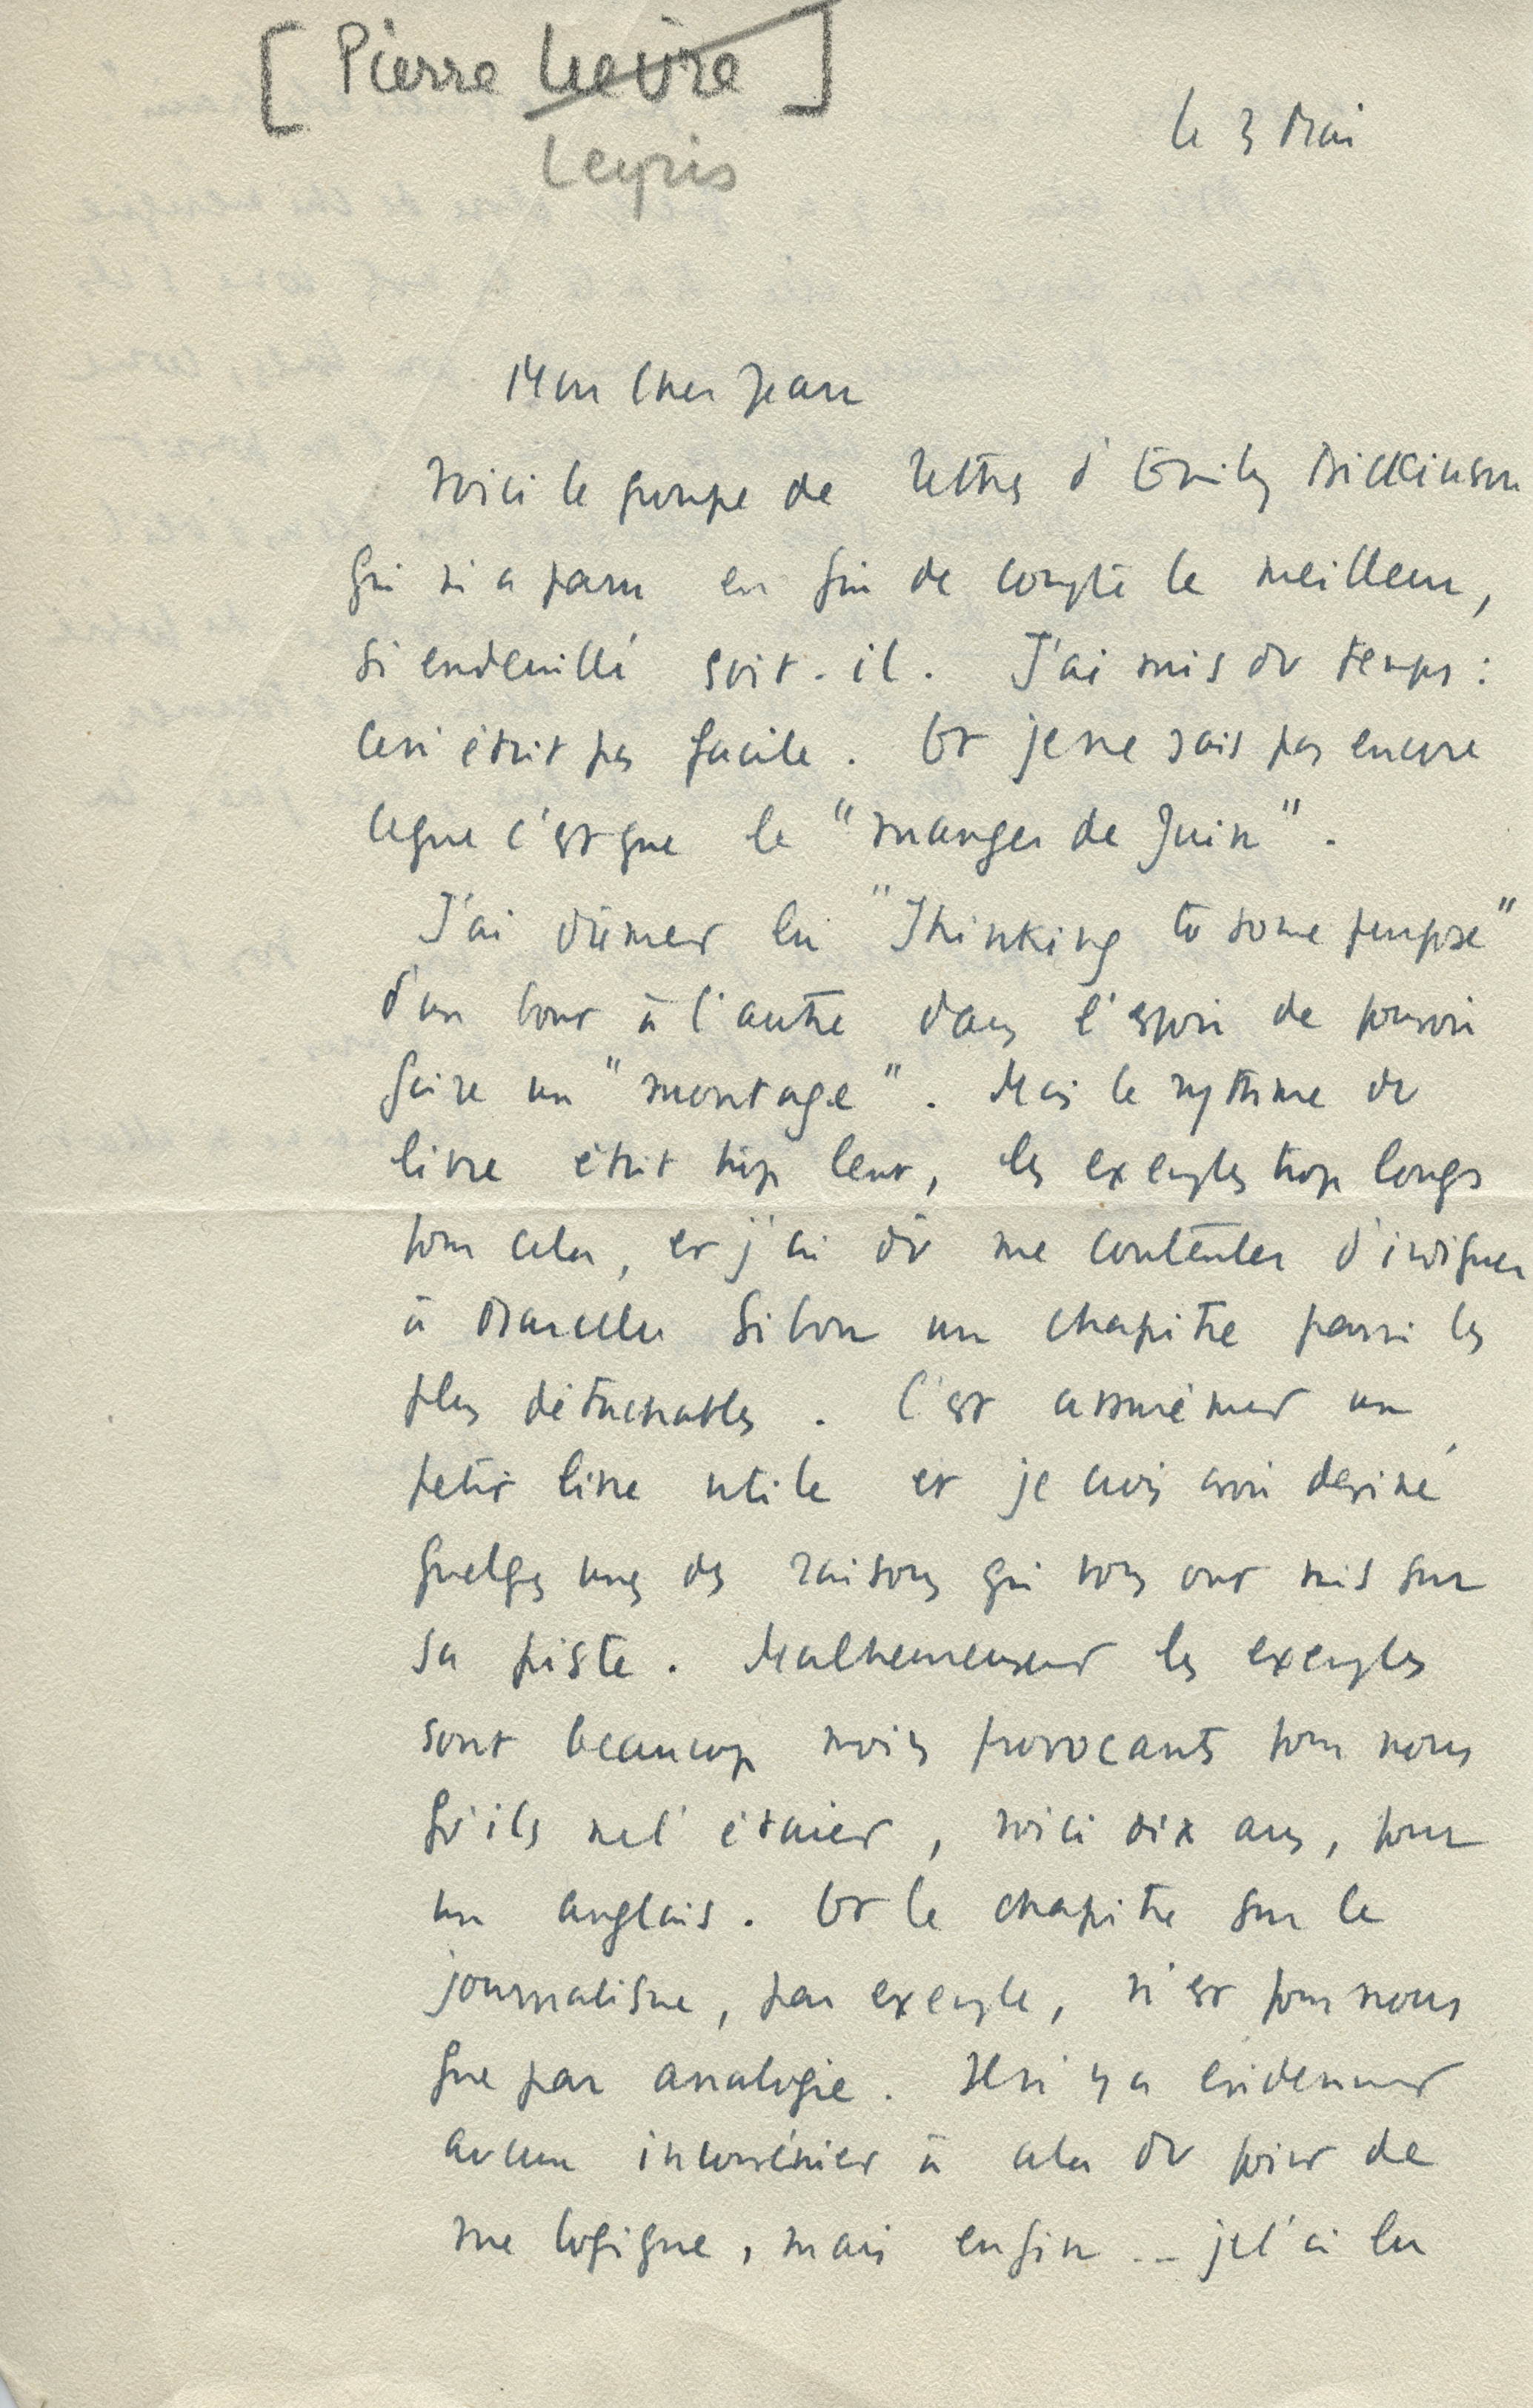 [Pierre Lievre]
Leyris
le 3 Mai
Mon cher Jean
Voici le groupe de lettres d'Emily Dickinson
qui m'a paru en fin de compte le meilleur,
si endeuillé soit-il. J'ai mis du temps :
ceci était pas facile. Et je ne sais pas encore
ce que c'est que le "manger de Juin".
J'ai dûment lu "Thinking to some purpose"
d'un bout à l'autre dans l'espoir de pouvoir
faire un "montage". Mais le rythme du
livre était trop lent, les exemples trop longs
pour cela, et j'ai dû me contenter d'indiquer
à Marcelle Sibon un chapitre parmi les
plus détachables. C'est assurément un
petit livre utile et je crois avoir deviné
quelques unes des raisons qui vous ont mis sur
sa piste. Malheureusement les exemples
sont beaucoup moins provocants pour nous
qu'ils ne l'étaient, voici dix ans, pour
un anglais. Et le chapitre sur le
journalisme, par exemple, n'est pour nous
que par analogie. Il n'y a évidemment
aucun inconvénient à cela du point de
vue logique, mais enfin... je l'ai lu